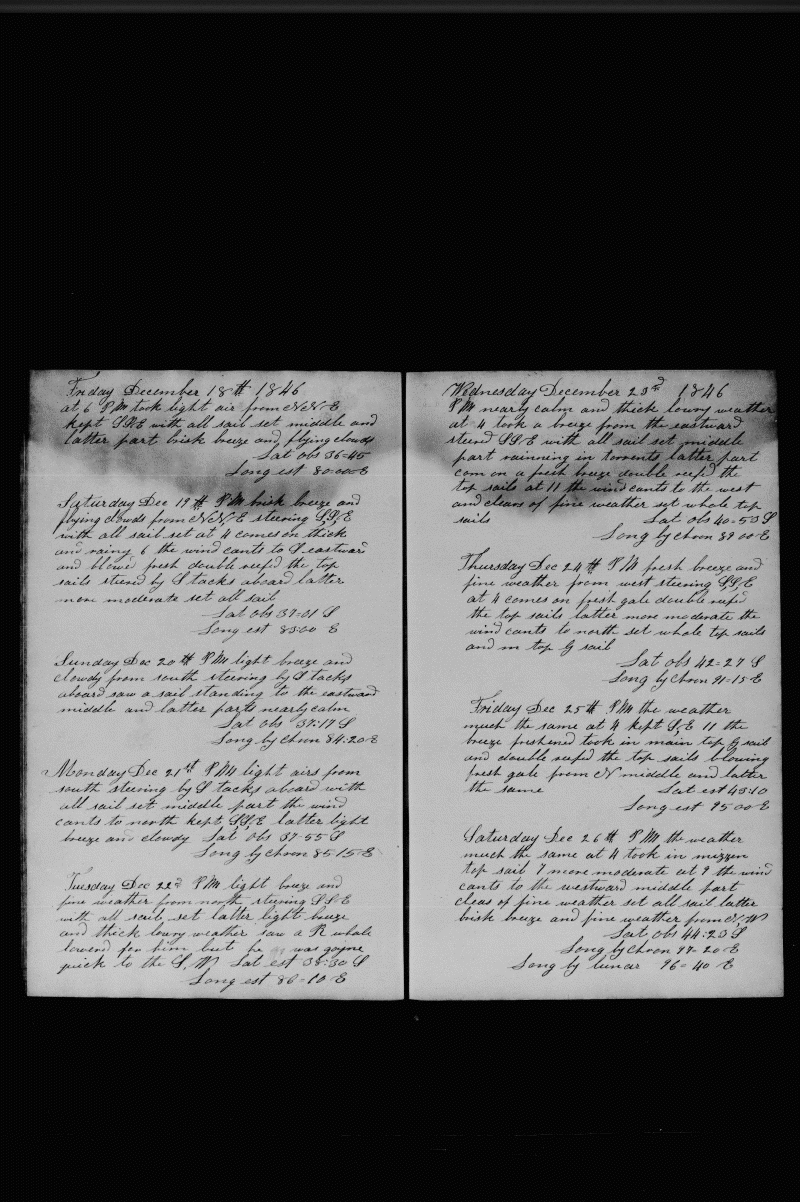 Friday December 18th 1846
at 6 PM took light air from N.N.E
kept S.S.E with all sail set middle and
latter part brisk breeze and flying clouds
Lat obs 36=45
Long est 80:00=E
Saturday Dec 19th PM brisk breeze and
flying clouds from N.N.E steering S,S,E
with all sail set at 4 comes on thick
and rainy 6 the wind cants to S. eastward
and blows fresh double reef'd the top
sails steerd by S tacks aboard latter
more moderate set all sail
Lat obs 37=01 S
Long est 83:00 E
Sunday Dec 20th PM light breeze and
clowdy from south steering by S tacks
aboard saw a sail standing to the eastward
middle and latter parts nearly calm
Lat obs 37:17 S
Long by chron 84:20=E
Monday Dec 21st PM light airs from
south steering by S tacks aboard with
all sail set middle part the wind
cants to north kept S,S,E latter light
breeze and clowdy Lat obs 37=55 S
Long by chron 85:15=E
Tuesday Dec 22d PM light breeze and
fine weather from north steering S.S.E
with all sail set latter light breeze
and thick lowry weather saw a R whale
lowerd for him but he was goyne
quick to the S, W Lat est 38:30 S
Long est 86=10 E
Wednesday December 23rd 1846
PM nearly calm and thick lowry weather
at 4 took a breeze from the eastward
steerd S,S,E with all sail set middle
part rainning in torrents latter part
com on a fresh breeze double reef'd the
top sails at 11 the wind cants to the west
and clears of fine weather set whole top
sails Lat obs 40=53 S
Long by chron 89 00 E
Thursday Dec 24th PM fresh breeze and
fine weather from west steering S,S,E
at 4 comes on fresh gale double reef'd
the top sails latter more moderate the
wind cants to north set whole top sails
and m top G sail
Lat obs 42=27 S
Long by chron 91=15 E
Friday Dec 25th PM the weather
much the same at 4 kept S,E 11 the
breeze freshened took in main top G sail
and double reef'd the top sails blowing
fresh gale from N middle and latter
the same Lat est 43:10
Long est 95 00 E
Saturday Dec 26th PM the weather
much the same at 4 took in mizzen
top sail 7 more moderate at 9 the wind
cants to the westward middle part
clears of fine weather set all sail latter
brisk breeze and fine weather from N, W
Lat obs 44:23 S
Long by chron 97=20 E
Long by lunar 96=40 E